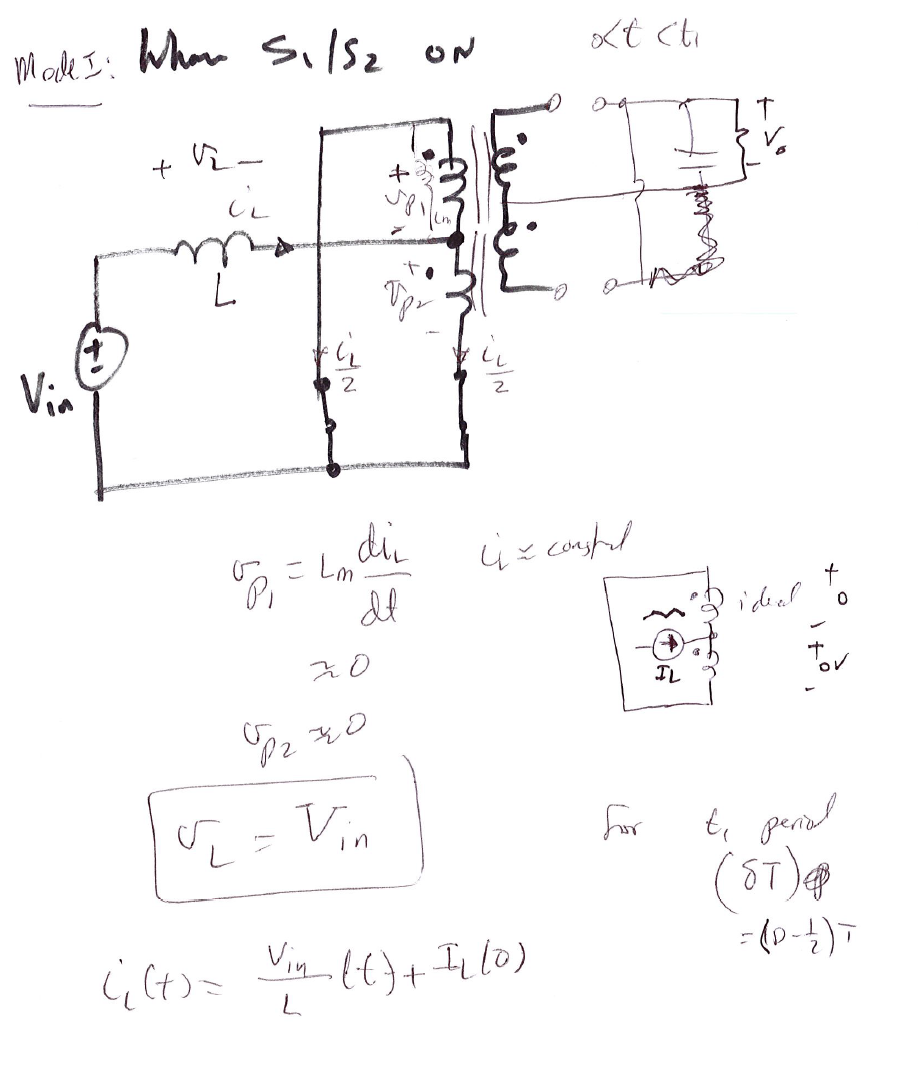 Mode I: When S1/S2 ON
o<t<t1
+ vL -
iL
L
+ vp1 -
Lm
+ vp2 -
+ Vo -
iL/2
iL/2
+ -
Vin
vp1 = Lm diL/dt
iL ≈ constnt
≈ 0
vp2 ≈ 0
ideal
+ 0 -
+ 0V -
IL
vL = Vin
For t1 period
(δT)
= (D-1/2)T
iL(t) = Vin/L (t) + IL(0)